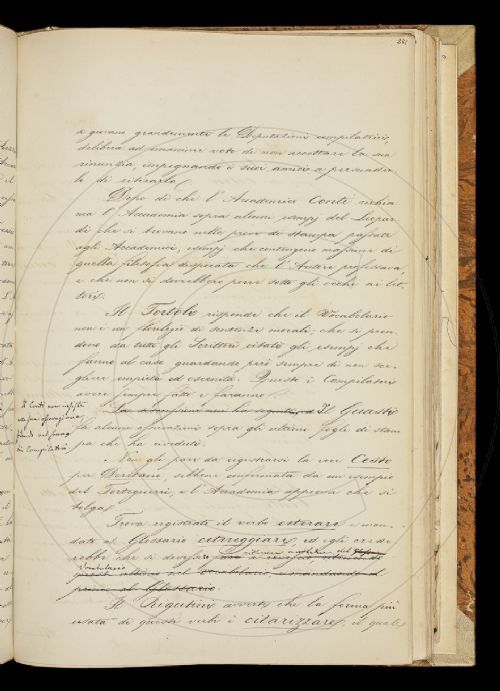 281
a giovano grandemente le Deputazioni compilatrici,
delibera ad unanime voto di non accettare la sua
rinunzia, impegnando i suoi amici a persuader
lo di ritirarla.
Dopo di che l'Accademico Conti richia
ma l'Accademia sopra alcuni esempj del Leopar
di che si trovano nelle prove di stampa passate
agli Accademici, esempj che contengono massime di
quella filosofia disperata che l'Autore professava,
e che non si dovrebbero porre sotto gli occhi ai let-
tori.
Il Tortoli risponde che il Vocabolario
non è un florilegio di sentenze morali; che si pren-
dono da tutti gli Scrittori citati gli esempj che
fanno al caso guardando però sempre di non sce-
gliere empietà ed oscenità. Questo i Compilatori
avere sempre fatto e faranno.
Il Conti non insiste
Il Guasti
fa alcune osservazioni sopra gli ultimi fogli di stam
pa che ha veduto.
Non gli pare da registrarsi la voce Cesto
per sebbene confermata da un esempio
del Forteguerri, e l'Accademia approva che si
tolga.
Trova registrato il verbo ceterare e man-
dato al Glossario cetereggiare, ed egli crede
rebbe che si dovesse
Vocabolario
Il Rigutini avverte che la forma più
usata di questi verbi è citarizzare, il quale